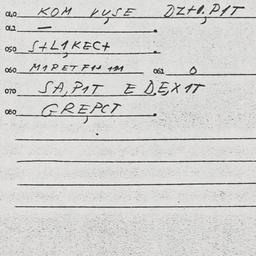 040 KOM VUSE DZ+1.P1T
042 —
050 S+L1KEC+
060 M1RETF++ 1M 061 0
070 SA,P1T E DE,X1T
080 GRE,PCT